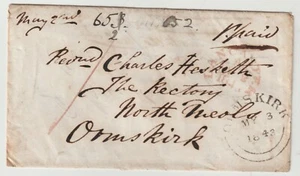 May 2nd 65 652. Ppaid
2
Revd Charles Hesketh
The Rectory
North Meols
Ormskirk
ORMSKIRK
MY 3
1843